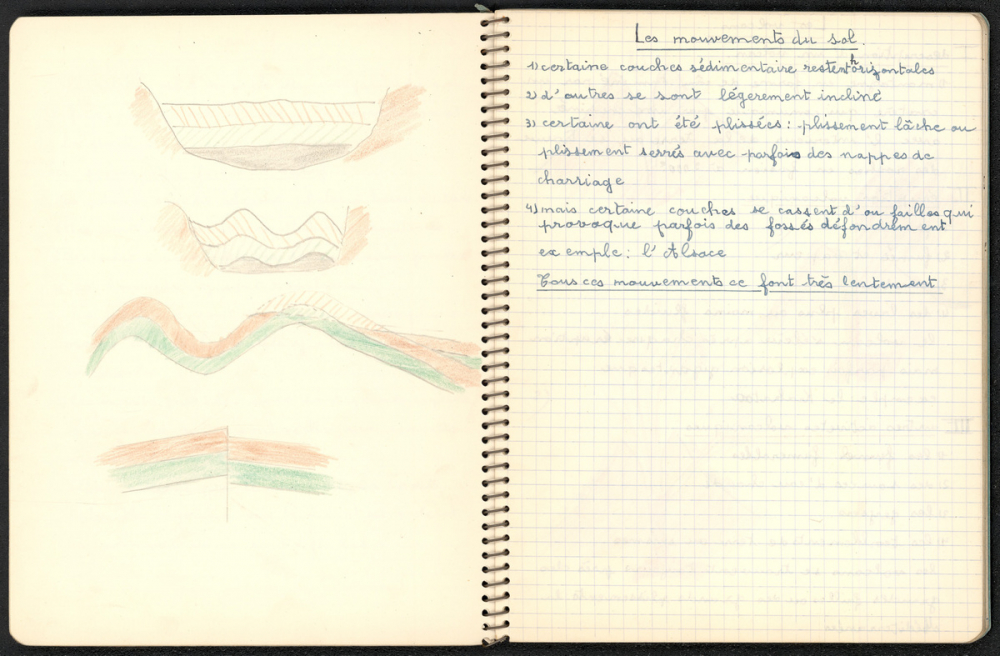 Les mouvements du sol.
1) certaine couches sédimentaire restent horizontales
2) d'autres se sont légerement incliné
3) certaine ont été plissées : plissement lâche ou
plissement serrés avec parfois des nappes de
charriage
4) mais certaine couches se cassent d'ou failles qui
provoque parfois des fossés défondrement
exemple : l'Alsace
Tous ces mouvements ce font très lentement.